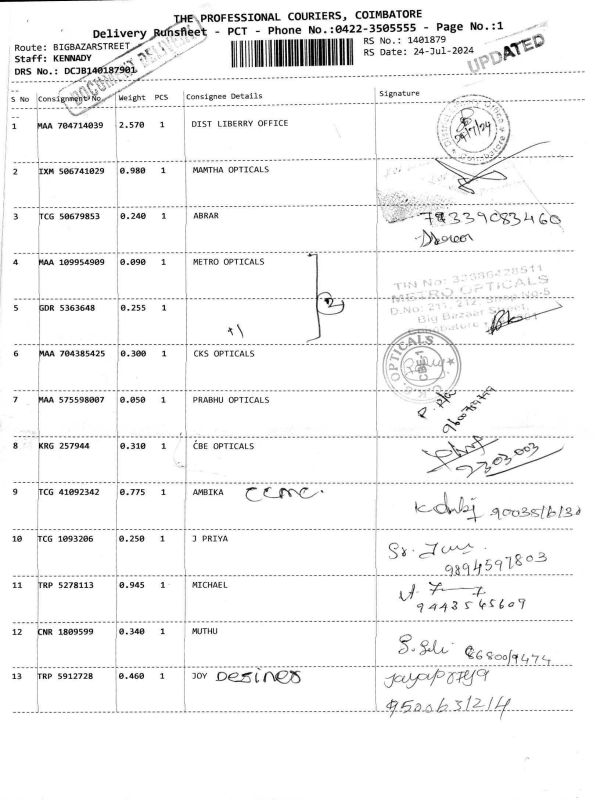 THE PROFESSIONAL COURIERS, COIMBATORE
Delivery Runsheet - PCT - Phone No.:0422-3505555 - Page No.:1
Route: BIGBAZARSTREET
RS No.: 1401879
Staff: KENNADY
RS Date: 24-Jul-2024
DRS No.: DCJB140187901
DOCUMENT DELIVERY
UPDATED
S No Consignment No. Weight PCS Consignee Details Signature
1 MAA 704714039 2.570 1 DIST LIBERRY OFFICE
2 IXM 506741029 0.980 1 MAMTHA OPTICALS
3 TCG 50679853 0.240 1 ABRAR
4 MAA 109954909 0.090 1 METRO OPTICALS
TIN No:
METRO OPTICALS
D.No: 211, 212,
5 GDR 5363648 0.255 1
Big Bazaar Street,
+1
2
6 MAA 704385425 0.300 1 CKS OPTICALS
OPTICALS
7 MAA 575598007 0.050 1 PRABHU OPTICALS
8 KRG 257944 0.310 1 CBE OPTICALS
9 TCG 41092342 0.775 1 AMBIKA CCMC.
10 TCG 1093206 0.250 1 J PRIYA
9894597803
11 TRP 5278113 0.945 1 MICHAEL
9443545609
12 CNR 1809599 0.340 1 MUTHU
13 TRP 5912728 0.460 1 JOY Desines